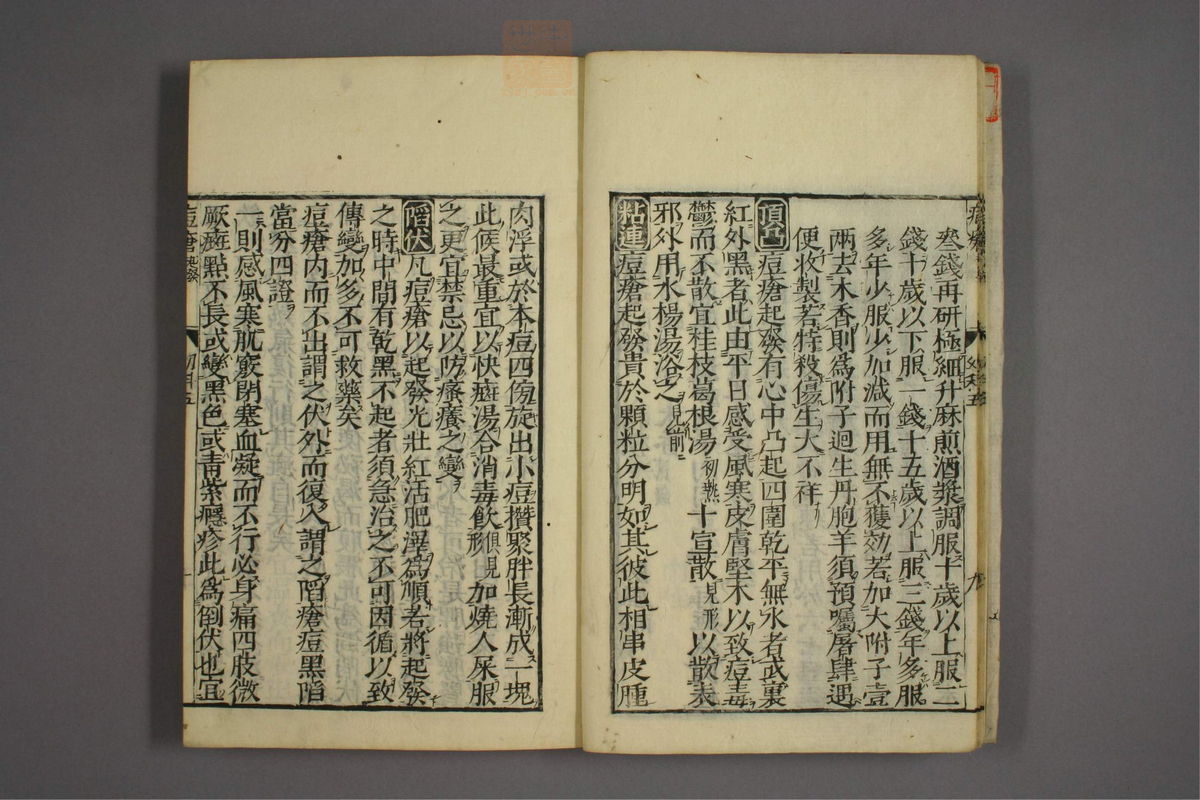 叁錢再研極細升麻煎酒漿調服十歲以上服二
錢十歲以下服一錢十五歲以上服三錢年多服
多年少服少加減而用無不獲効若加大附子壹
兩去木香則為附子迴生丹胞羊須預囑屠肆遇
便收製若特殺傷生大不祥
頂凸痘瘡起發有心中凸起四圍乾平無水者或裏
紅外黑者此由平日感受風寒皮膚堅木以致痘毒
鬱而不散宜桂枝葛根湯初熱十宣散見形以散表
邪外用水楊湯浴之見前
粘連痘瘡起發貴於顆粒分明如其彼此相串皮腫
肉浮或於本痘四傍旋出小痘攢聚胖長漸成一塊
此候最重宜以快癍湯合消毒飲俱見形加燒人屎服
之更宜禁忌以防癢之變
陷伏凡痘瘡以起發光壯紅活肥澤為順者將起發
之時中間有乾黑不起者須急治之不可因循以致
傳變加多不可救藥矣
痘瘡內而不出謂之伏外而復入謂之陷瘡痘黑陷
當分四證
一則感風寒肌竅閉塞血凝而不行必身痛四肢微
厥癍點不長或變黑色或青紫癮疹此為倒伏也宜